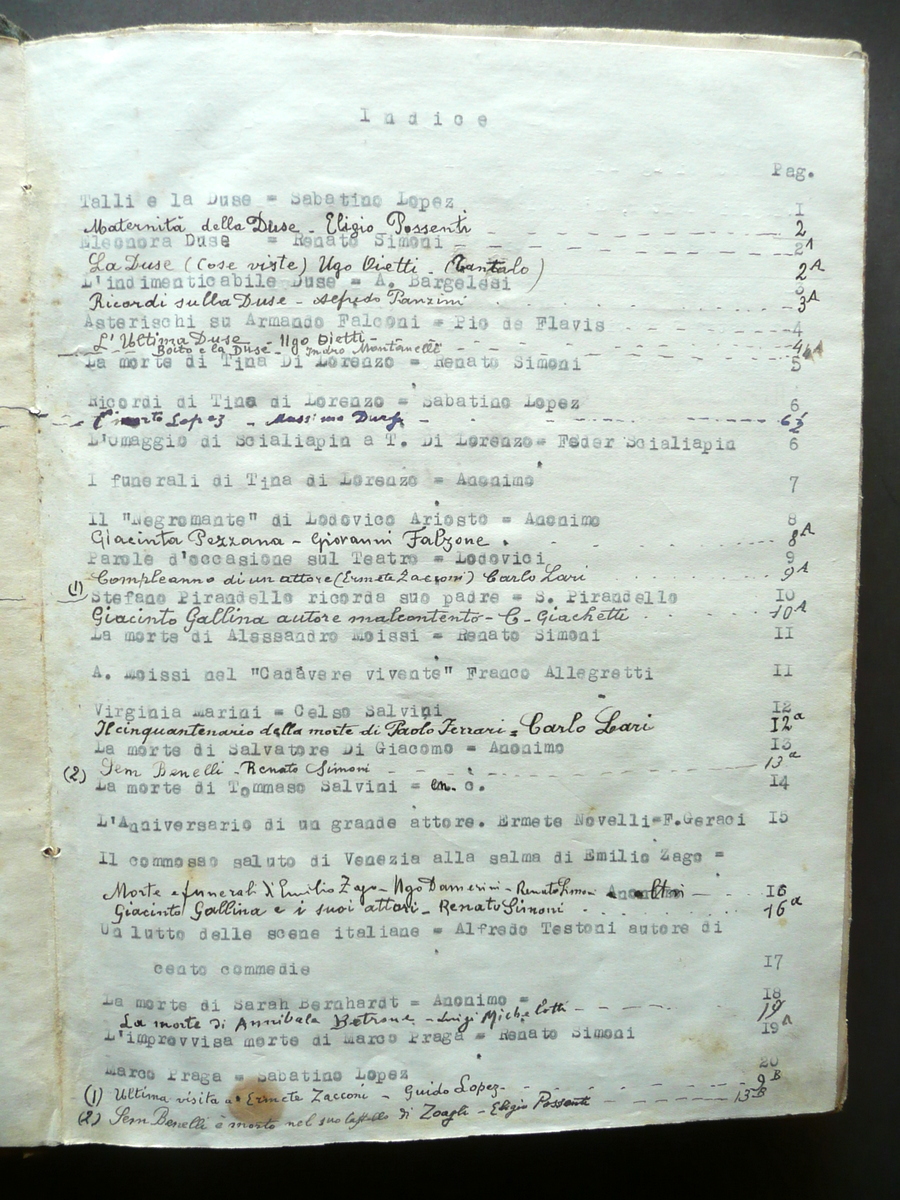 Indice
Pag.
Talli e la Duse = Sabatino Lopez I
Maternità della Duse - Eligio Possenti 2
Eleonora Duse = Renato Simoni 2A
La Duse (Cose viste) Ugo Ojetti - (Tantalo) 2A
L'indimenticabile Duse = A. Bargelesi 3
Ricordi sulla Duse - Alfredo Panzini 3A
Asterischi su Armando Falconi = Pio de Flavis 4
L'Ultima Duse - Ugo Ojetti 4A
Boito e la Duse - Indro Montanelli
La morte di Tina Di Lorenzo = Renato Simoni 5
Ricordi di Tina di Lorenzo = Sabatino Lopez 6
È morto Lopez - Massimo
L'omaggio di Scialiapin a T. Di Lorenzo= Feder Scialiapin 6
I funerali di Tina di Lorenzo = Anonimo 7
Il "Negromante" di Lodovico Ariosto = Anonimo 8
Giacinta Pezzana - Giovanni Falzone 8A
Parole d'occasione sul Teatro = Lodovici 9
Compleanno di un attore (Ermete Zacconi) Carlo Lari 9A
(1) Stefano Pirandello ricorda suo padre = S. Pirandello 10
Giacinto Gallina autore malcontento - C. Giachetti 10A
La morte di Alessandro Moissi = Renato Simoni II
A. Moissi nel "Cadavere vivente" Franco Allegretti II
Virginia Marini = Celso Salvini 12
Il cinquantenario della morte di Paolo Ferrari = Carlo Lari 12a
La morte di Salvatore Di Giacomo = Anonimo 13
(2) Sem Benelli - Renato Simoni 13a
La morte di Tommaso Salvini = en. c. 14
L'Anniversario di un grande attore. Ermete Novelli=F.Geraci 15
Il commosso saluto di Venezia alla salma di Emilio Zago =
Morte e funerali di Emilio Zago - Ugo Damerini - Renato Simoni altri 16
Giacinto Gallina e i suoi attori - Renato Simoni 16a
Un lutto delle scene italiane = Alfredo Testoni autore di
cento commedie 17
La morte di Sarah Bernhardt = Anonimo = 18
La morte di Annibale Betrone - Luigi Michelotti 19
L'improvvisa morte di Marco Praga = Renato Simoni 19A
Marco Praga = Sabatino Lopez 20
(1) Ultima visita a Ermete Zacconi - Guido Lopez - 9B
(2) Sem Benelli è morto nel suo castello di Zoagli - Eligio Possenti 13B